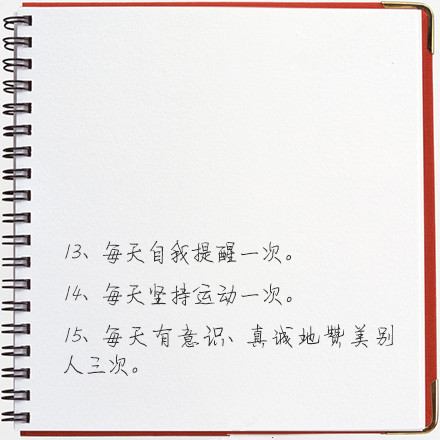 13、每天自我提醒一次。
14、每天坚持运动一次。
15、每天有意识、真诚地赞美别
人三次。